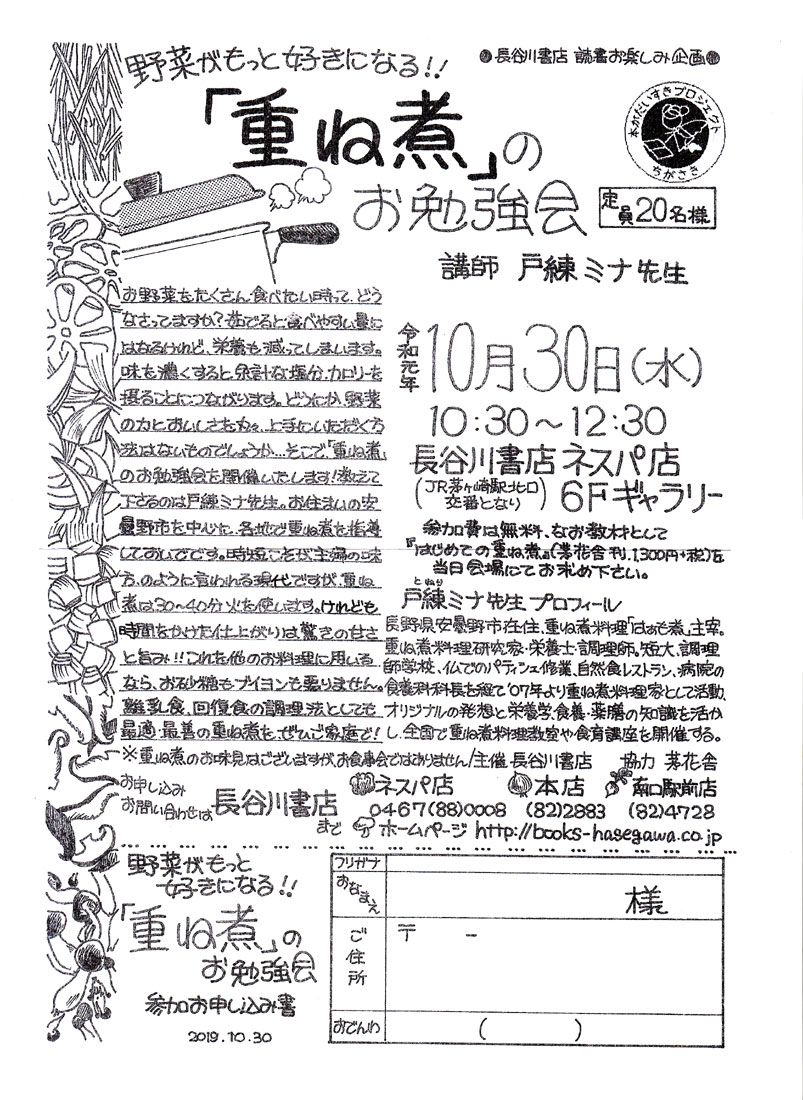 野菜がもっと好きになる!!
●長谷川書店 読書お楽しみ企画●
「重ね煮」の
お勉強会
本がだいすきプロジェクト
ちがさき
定員20名様
講師 戸練ミナ先生
お野菜をたくさん食べたい時って、どう
なさってますか?茹でると食べやすい量に
はなるけれど、栄養も減ってしまいます。
味を濃くすると、余計な塩分、カロリーを
摂ることにつながります。どうにか、野菜
の力とおいしさを丸々、上手にいただく方
法はないものでしょうか…そこで「重ね煮」
のお勉強会を開催いたします!教えて
下さるのは戸練ミナ先生。お住まいの安
曇野市を中心に、各地で重ね煮を指導
しておいでです。時短こそが主婦の味
方、のように言われる現代ですが、重ね
煮は30〜40分火を使います。けれども
時間をかけた仕上がりは驚きの甘さ
と旨み!!これを他のお料理に用いる
なら、お砂糖もブイヨンも要りません。
離乳食、回復食の調理法としても
最適・最善の重ね煮を、ぜひご家庭で!
令和元年
10月30日(水)
10:30〜12:30
長谷川書店ネスパ店
(JR茅ヶ崎駅北口 交番となり) 6Fギャラリー
参加費は無料、なお教材として
『はじめての重ね煮』(茅花舎刊、1,300円+税)を
当日会場にてお求め下さい。
とねり
戸練ミナ先生プロフィール
長野県安曇野市在住、重ね煮料理「はぁも煮」主宰。
重ね煮料理研究家・栄養士・調理師。短大、調理
師学校、仏でのパティシエ修業、自然食レストラン、病院の
食養科科長を経て'07年より重ね煮料理家として活動、
オリジナルの発想と栄養学、食養・薬膳の知識を活か
し、全国で重ね煮料理教室や食育講座を開催する。
※重ね煮のお味見はございますが、お食事会ではありません/主催 長谷川書店 協力 茅花舎
お申し込み
お問い合わせは 長谷川書店 まで
ネスパ店 本店 南口駅前店
0467(88)0008 (82)2883 (82)4728
ホームページ http://books-hasegawa.co.jp
野菜がもっと
好きになる!!
「重ね煮」の
お勉強会
参加お申し込み書
2019.10.30
フリガナ
おなまえ
様
ご住所
〒 -
おでんわ
( )